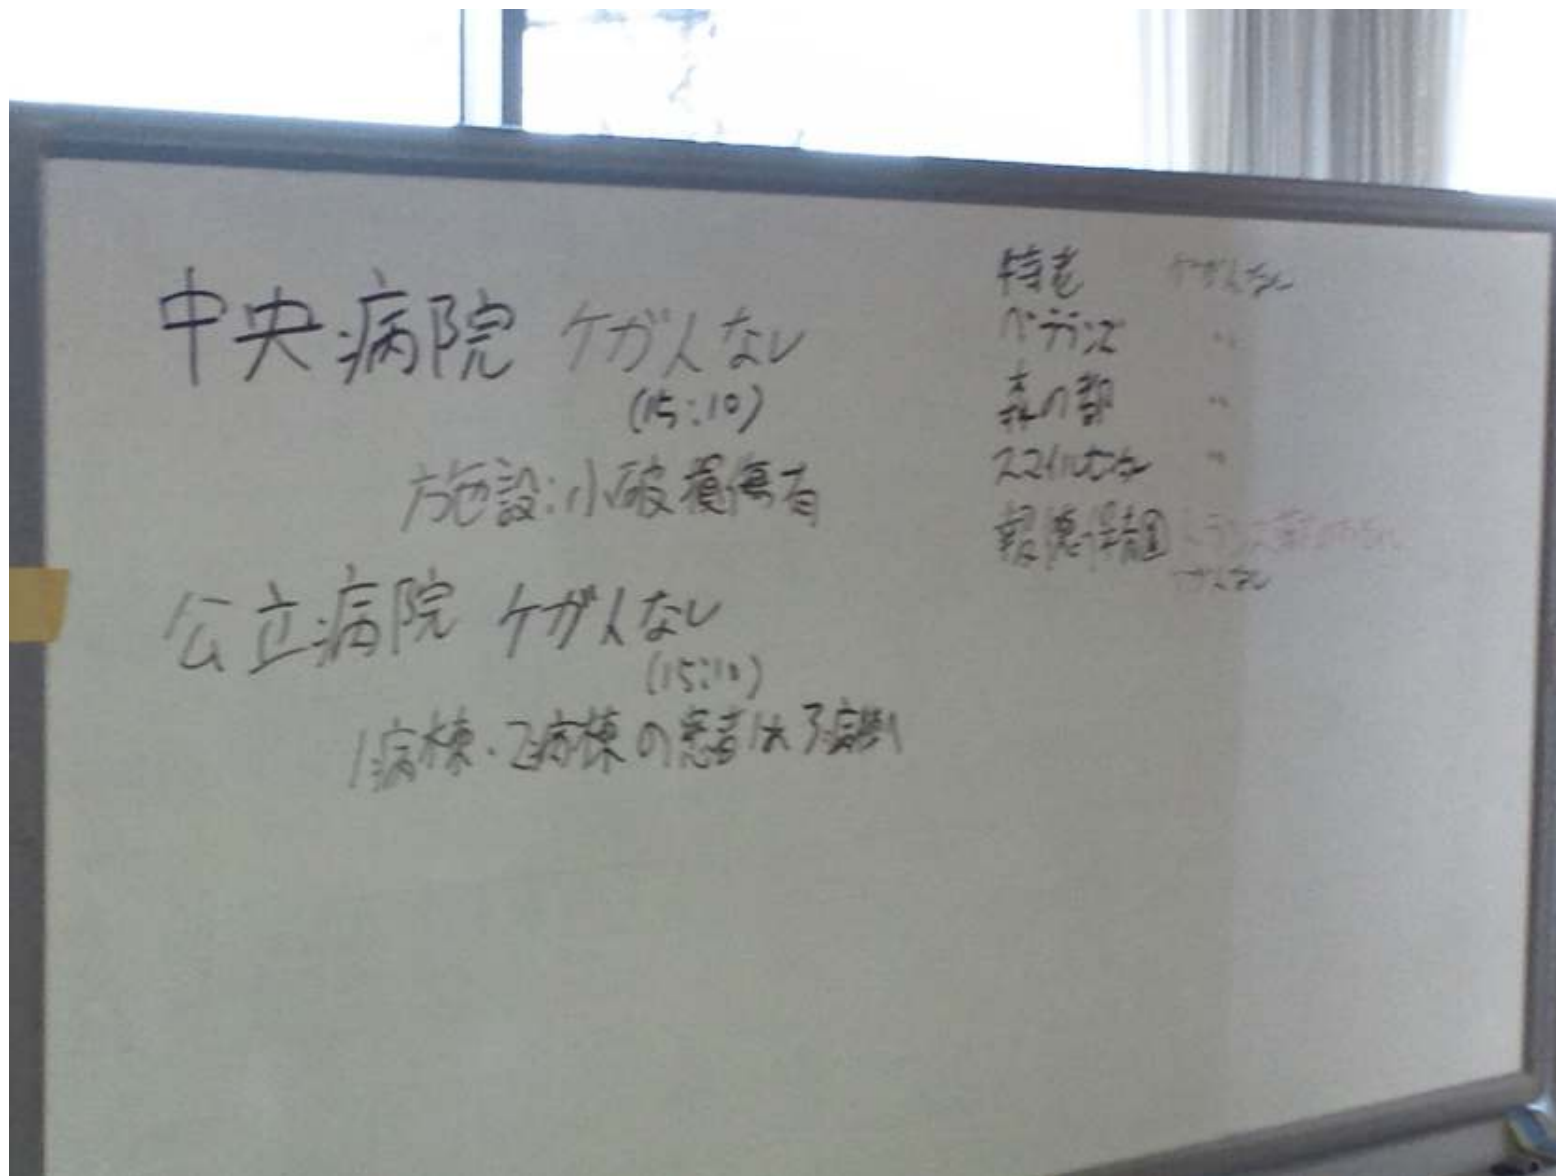 中央病院 ケガ人なし
(15:10)
施設:小破損有
公立病院 ケガ人なし
(15:10)
1病棟・2病棟の患者は3病棟
特老 ケガ人なし
ベテランズ 〃
森の都 〃
スマイル 〃
報徳
ケガ人なし